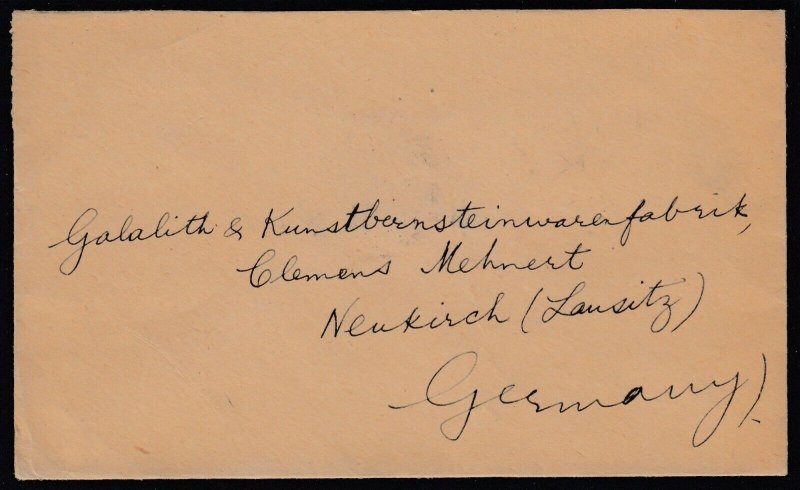 Galalith & Kunstbernsteinwarenfabrik,
Clemens Mehnert
Neukirch (Lausitz)
Germany).